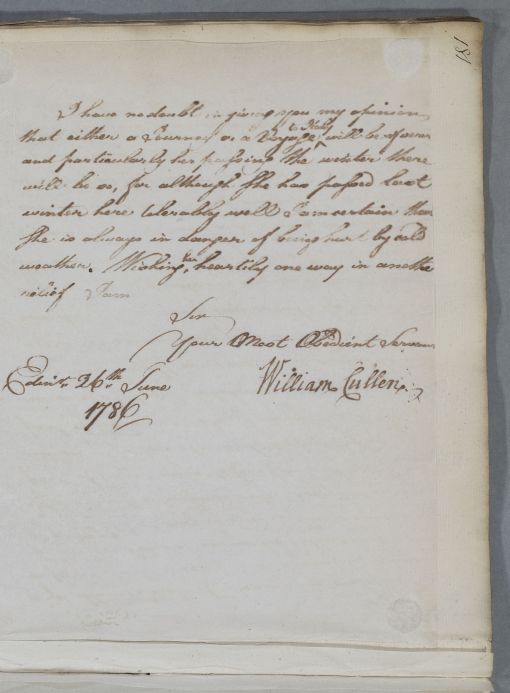 181
I have no doubt in giving you my opinion
that either a Journey or a Voyage to Italy will be of
and particularly her passing the winter there
will be so, for although She has passed last
winter here tolerably well I am certain that
She is always in danger of being hurt by cold
weather. Wishing her heartily one way in another
relief I am
Sir
Your Most Obedient Servant
Edinr. 26th June William Cullen
1786